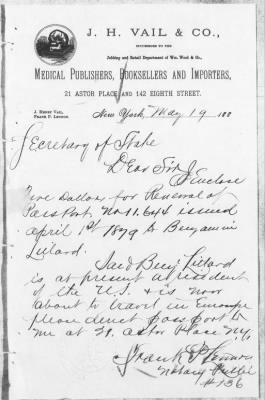 J. H. VAIL & CO.,
SUCCESSORS TO THE
Jobbing and Retail Department of Wm. Wood & Co.,
MEDICAL PUBLISHERS, BOOKSELLERS AND IMPORTERS,
21 ASTOR PLACE AND 142 EIGHTH STREET.
J. HENRY VAIL,
FRANK P. LENNON.
New York, May 19 188
Secretary of State
Dear Sir I Enclose
five Dollars for Renewal of
Pass Port. No 11.644 issued
april 1st 1879 to Benjamin
Lillard.
Said Benj Lillard
is at present a resident
of the U.S. & is now
about to travel in Europe
please direct passport to
me at 21 astor Place N.Y.
Frank P Lennon
Notary Public
# 136